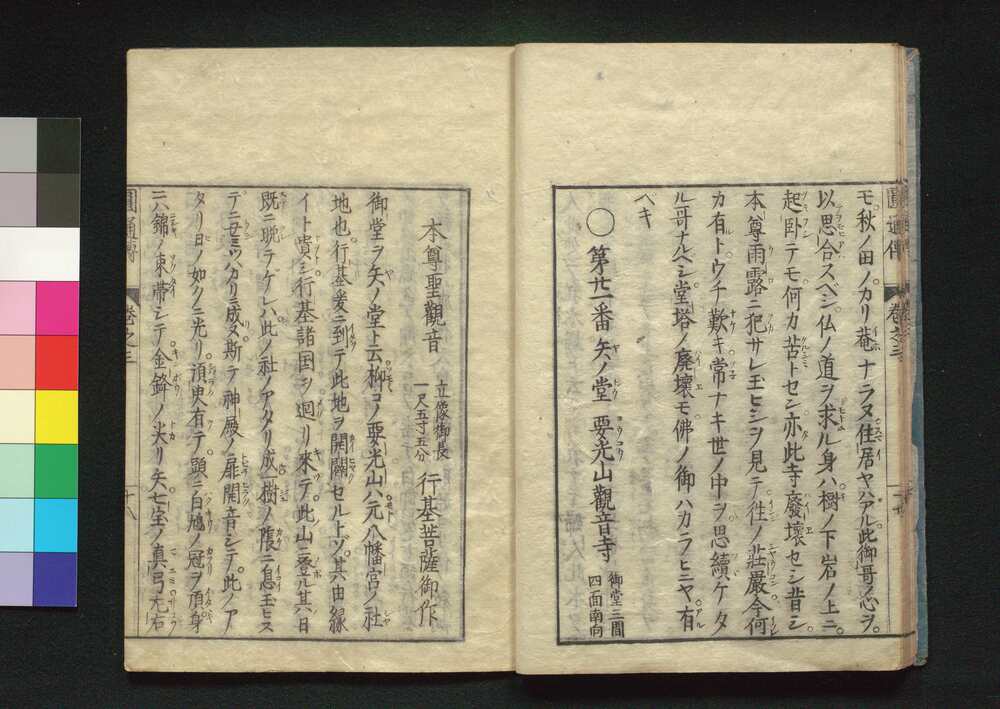 圓通傳 巻之三
モ秋ノ田ノカリ菴ナラヌ住居ヤハアル此御哥ノ心ヲ
以思合スベシ仏ノ道ヲ求ル身ハ樹ノ下岩ノ上ニ
起卧テモ何カ苦トセン亦此寺廢壊セシ昔シ
本尊雨露ニ犯サレ玉ヒシヲ見テ徃ノ莊嚴今何
カ有ルトウチ歎キ常ナキ世ノ中ヲ思續ケタ
ル哥ナルベシ堂塔ノ廢壊モ佛ノ御ハカラヒニヤ有
ベキ
〇第廿一番 矢ノ堂 要光山觀音寺 御堂三間
四面南向
本尊聖觀音 立像御長
一尺五寸五分 行基菩薩御作
御堂ヲ矢ノ堂ト云柳コノ要光山ハ元八幡宮ノ社
地也行基爰ニ到テ此地ヲ開闢セル上ゾ其由縁
イト貴シ行基諸国ヲ廻リ來テ此山ニ登元其日
既ニ晩テゲレハ此ノ社ノアタリ成樹ノ陰ニ息玉ニス
テニ丑ミツバカリニ成ヌ斯テ神殿ノ扉開音シテ此ノア
タリ日ノ如クニ光リ須臾有テ頭ニ白鳩ノ冠ヲ頂身
ニハ錦ノ束帯シテ金鋒ノ尖リ矢七宝ノ真弓左右
圓通傳 巻之三 十八